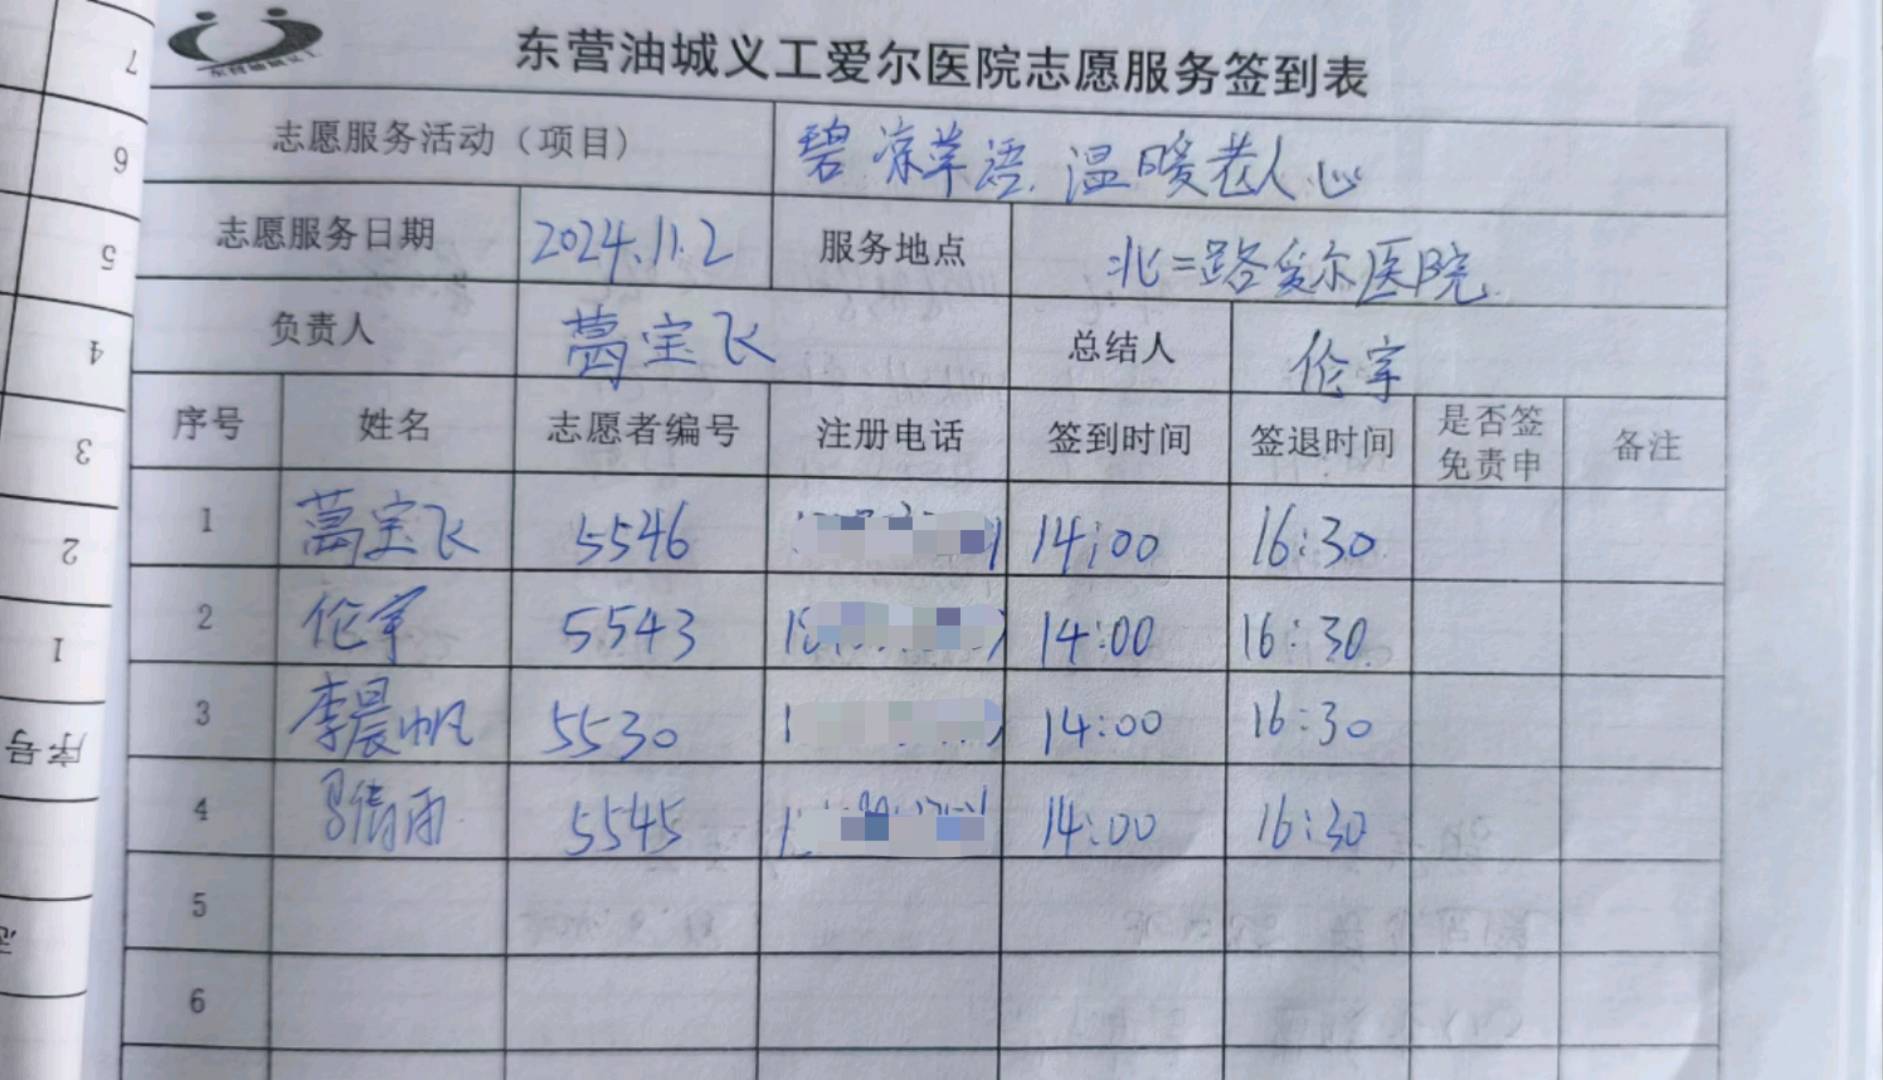 东营油城义工爱尔医院志愿服务签到表
志愿服务活动（项目） 碧 草语 温暖老人心
志愿服务日期 2024.11.2 服务地点 北二路爱尔医院
负责人 葛宝飞 总结人 伦宇
序号 姓名 志愿者编号 注册电话 签到时间 签退时间 是否签免责申 备注
1 葛宝飞 5546 14:00 16:30
2 伦宇 5543 14:00 16:30
3 李晨帆 5530 14:00 16:30
4 雨 5545 14:00 16:30
5
6
7
6
5
4
3
2
1
序号